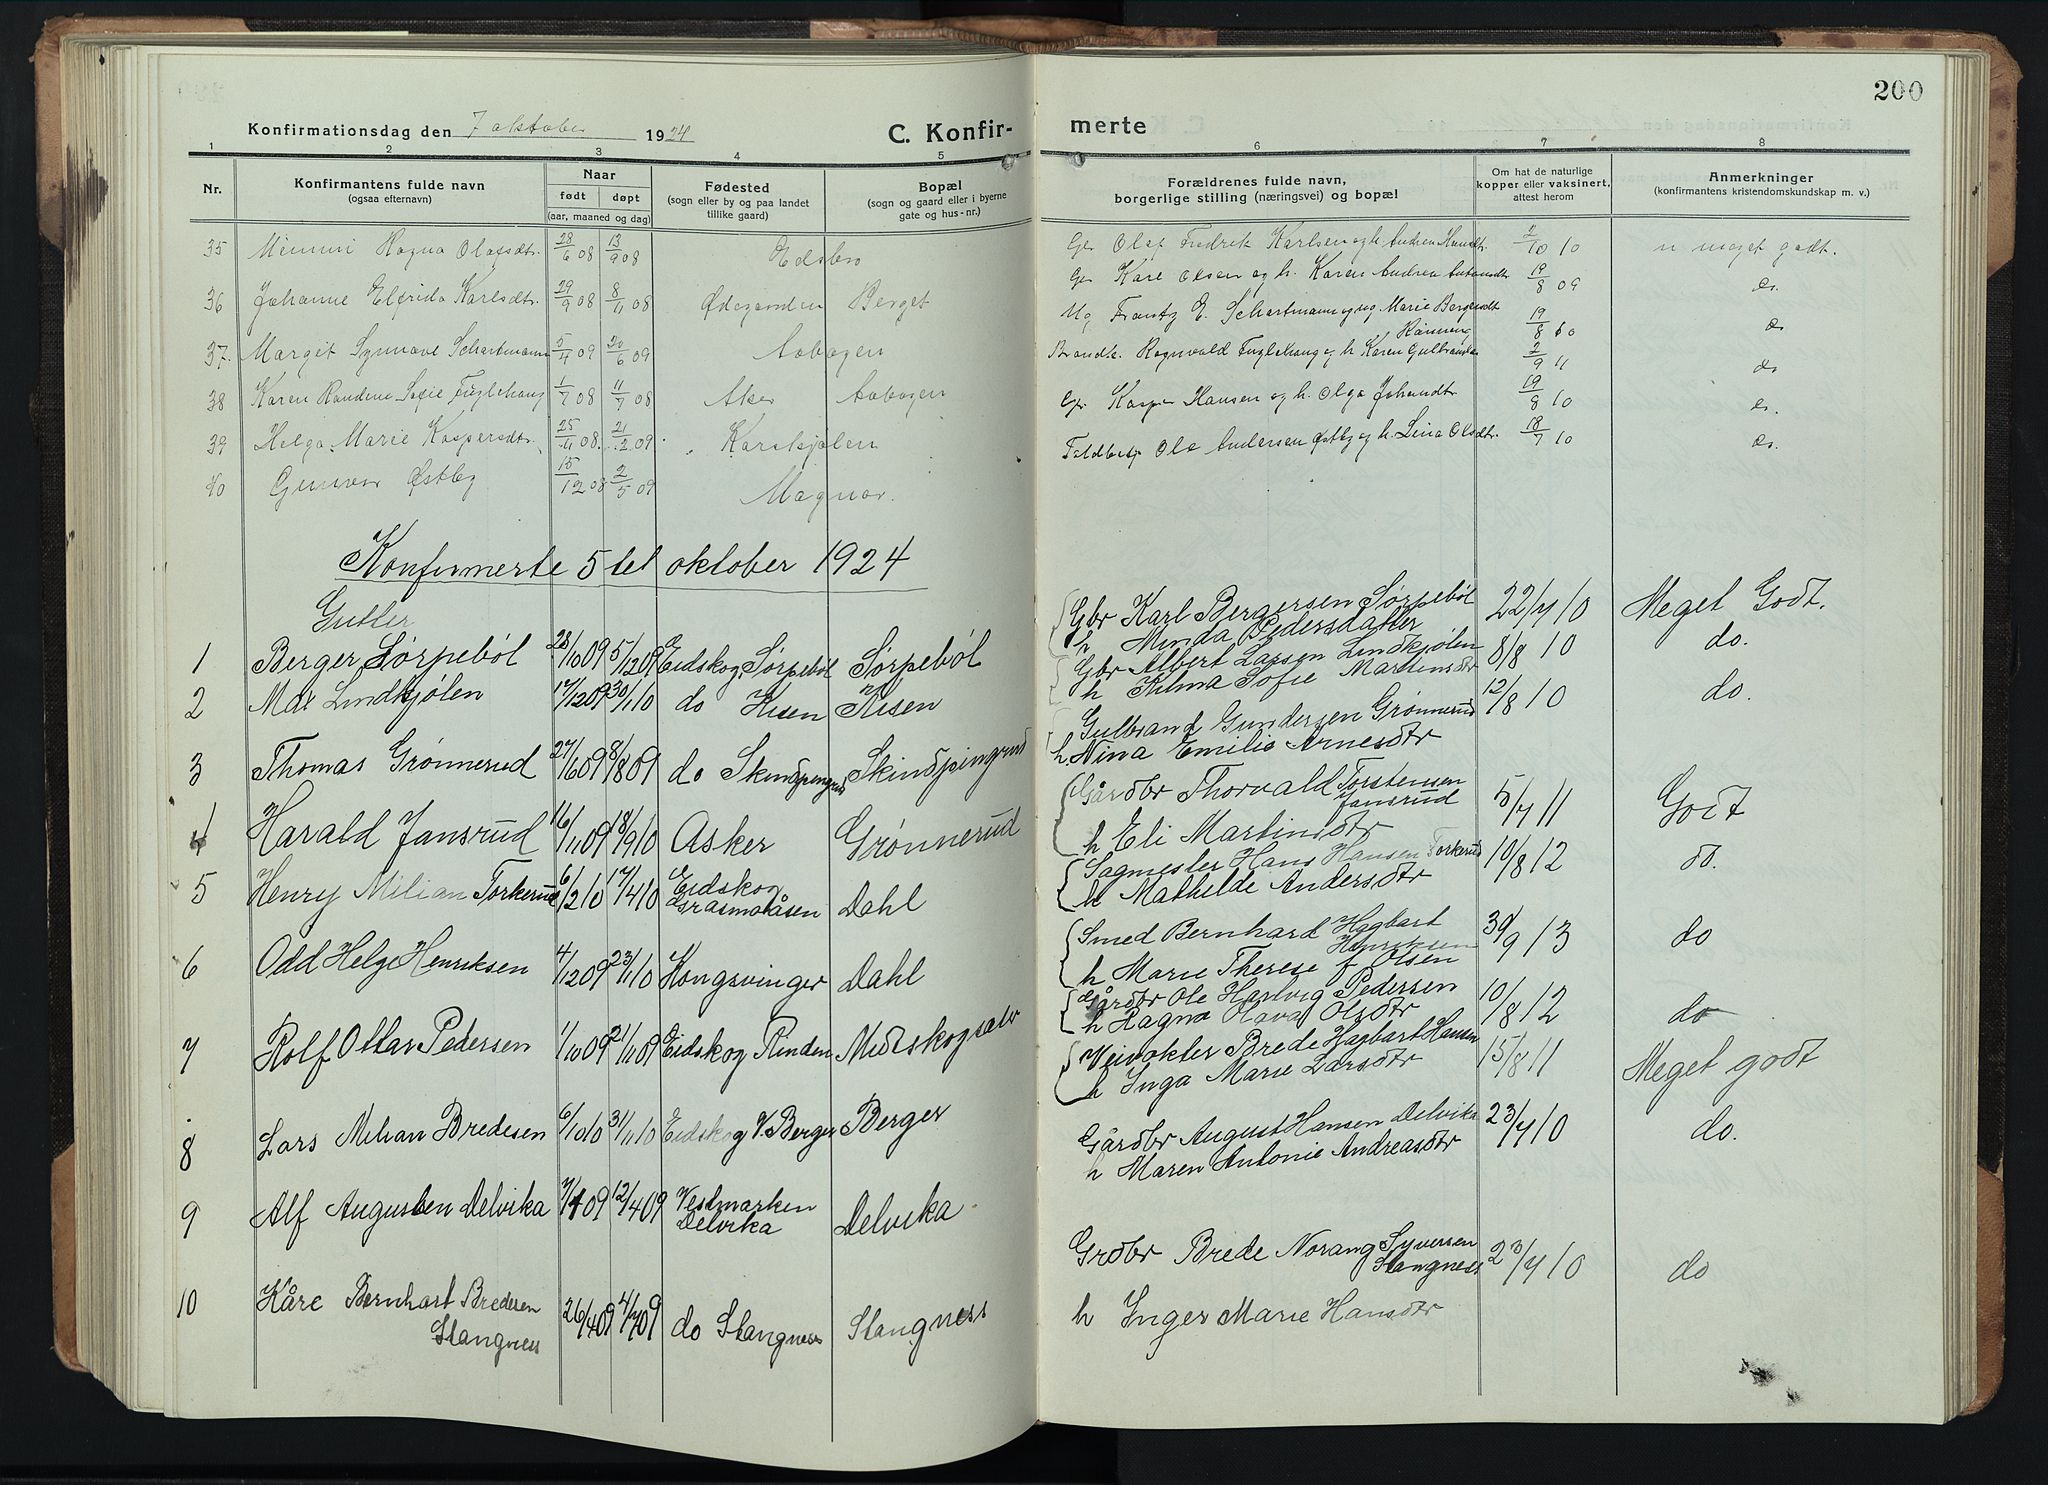 200
Konfirmationsdag den 7 oktober 1924 C. Konfir-
merte
1 2 3 4 5 6 7 8
Nr.
Konfirmantens fulde navn
(ogsaa efternavn)
Naar
født døpt
(aar, maaned og dag)
Fødested
(sogn eller by og paa landet
tillike gaard)
Bopæl
(sogn og gaard eller i byerne
gate og hus-nr.)
Forældrenes fulde navn,
borgerlige stilling (næringsvei) og bopæl
Om hat de naturlige
kopper eller vaksinert,
attest herom
Anmerkninger
(konfirmantens kristendomskundskap m. v.)
35 Mimmi Ragna Olafsdtr. 28/6 08 13/9 08 Edsbro
Gbr Olaf Fredrik Karlsen og h. Andrea 2/10 10 meget godt.
36 Johanne Elfrida Karlsdtr. 29/9 08 8/11 08 Ødegarden Berget
Gbr Karl Olsen og h. Karen Andrea 19/8 09 do.
37. Margit Synnøve Schartmann 5/4 09 20/6 09 Aabogen
Ug Frantz E. Schartmann og ug Marie Bergersdtr
19/8 do
38 Karen Randine Sofie Fuglehaug 1/7 08 11/7 08 Aker Aabogen
Ragnvald Fuglehaug og h Karen 2/9 11 do
39 Helga Marie Kaspersdtr. 25/11 08. 21/12 09. Karskjølen
Gbr Kasper Hansen og h. Olga Johansdtr 19/8 10 do.
40 Gunvor Østby 15/12 08 2/5 09 Magnor.
Ole Andersen Østby og h. Lina Olsdtr. 18/7 10 do.
Konfirmerte 5te oktober 1924
Gutter
1 Berger Sørpebøl 28/10 09 5/12 09 Eidskog Sørpebøl Sørpebøl
Gbr Karl Bergersen Sørpebøl 22/7 10 Meget Godt.
h Minda Pedersdatter
2 Max Lindkjølen 17/12 09 30/1 10 do Risen Risen
Gbr Albert Larsen Lindkjølen 8/8 10 do.
h Hilma Sofie Martinsdtr
3 Thomas Grønnerud 27/6 09 8/8 09 do Skindpungrud Skindpungrud
Gulbrand Gundersen Grønnerud 12/8 10 do.
h. Nina Emilie Arnesdtr
4 Harald Jansrud 16/11 09 18/9 10 Asker Grønnerud
Gårdbr Thorvald Torstensen
Jansrud 5/7 11 Godt
h Eli Martinsdtr
5 Henry Milian Torkerud 6/2 10 17/4 10 Eidskog
Grasmoåsen Dahl
Sagmester Hans Hansen Torkerud 10/8 12 do.
h Mathilde Andersdtr
6 Odd Helge Henriksen 4/12 09 23/1 10 Kongsvinger Dahl
Smed Bernhard Hagbart
Henriksen 30/9 13 do
h Marie Therese f. Olsen
7 Rolf Ottar Pedersen 1/10 09 21/11 09 Eidskog Rinden Midtskogsæter
Gårdbr Ole Hartvig Pedersen 10/8 12 do
h Ragna Olsdtr
8 Lars Milian Bredesen 6/10 10 31/1 10 Eidskog V. Berger Berger
Veivokter Brede Hagbart Hansen 15/8 11 Meget godt
h Inga Marie Larsdtr
9 Alf Augusten Delvika 7/1 09 12/4 09 Vestmarken
Delvika Delvika
Gårdbr August Hansen Delvika 23/7 10 do.
h Maren Antonie Andreasdtr
10 Kåre Bernhart Bredesen
Stangness 26/4 09 4/7 09 do Stangness Stangness
Grdbr Brede Norang Syversen
Stangness 23/7 10 do
h Inger Marie Hansdtr